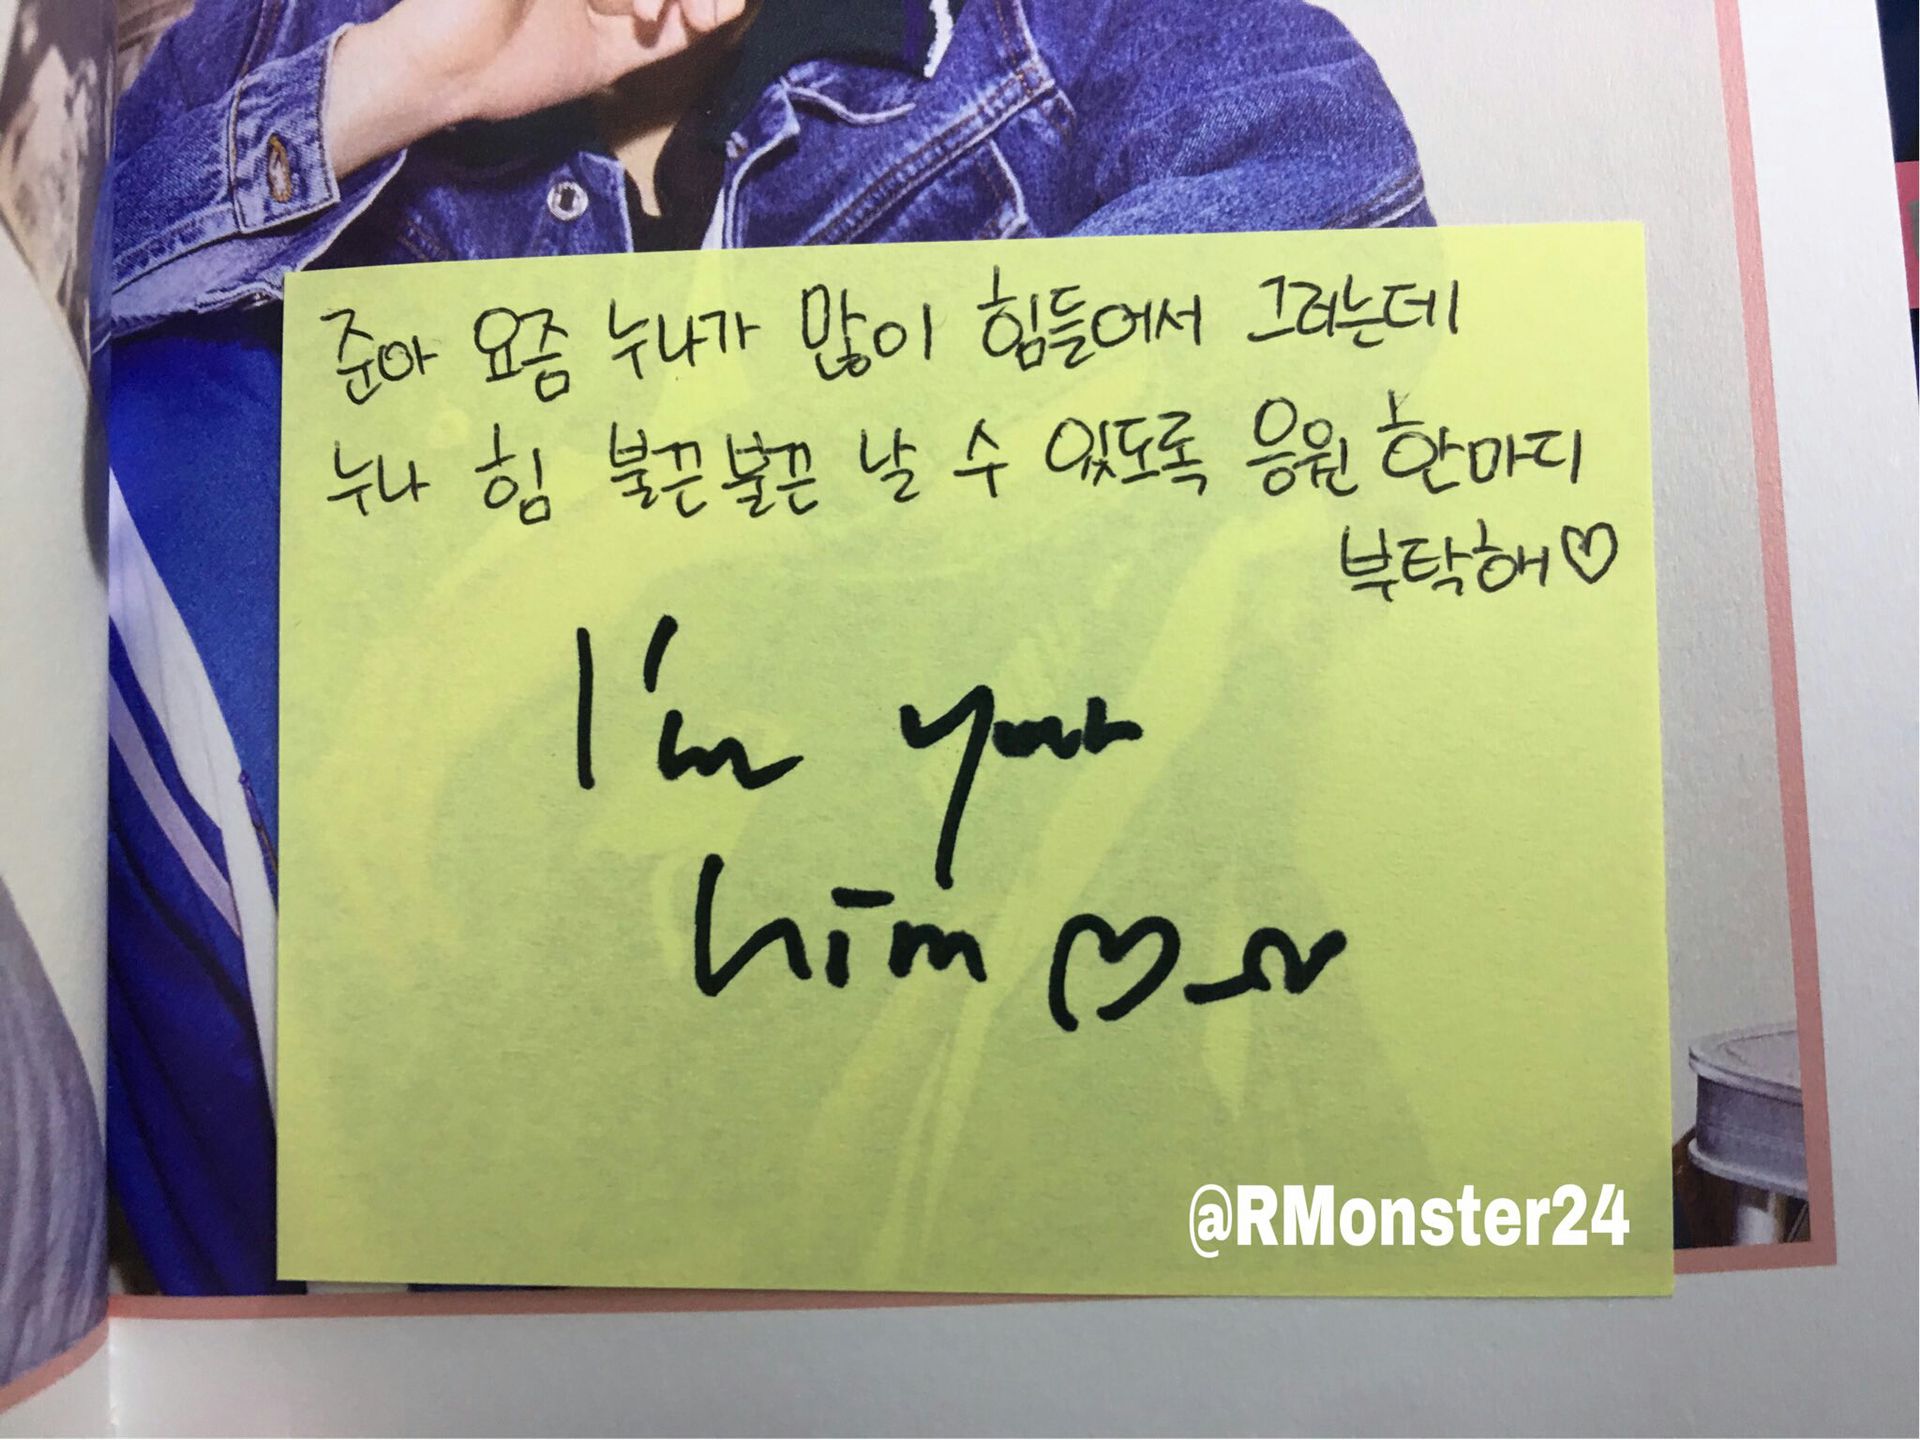 준아 요즘 누나가 많이 힘들어서 그러는데
누나 힘 불끈불끈 날 수 있도록 응원 한마디
부탁해♡
I'm your
him ♡
@RMonster24